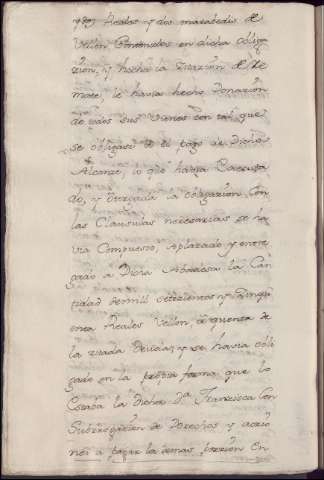 y Reales y dos maravedis de
Vellon Contenidos en dicha obliga
zion, y hecha la Citazion de Re
mate, le havia hecho Donazion
de todos sus Vienes con tal que
se obligase a el pago de Dicho
Alcanze, lo que havia Executa
do, y otorgada la obligazion Con
las Clausulas necesarias se ha
via Compuesto, Ajustado y entre
gado a Dicha Abadesa la Can
tidad de mill setezientos y Cinqu
enta Reales Vellon, a quenta de
la zitada Deuda, y se havia obli
gado en la propia forma que lo
Estaba la Dicha Dª Francisca Con
Subrrogazion de Derechos y accio
nes a pagar la demas porzion En